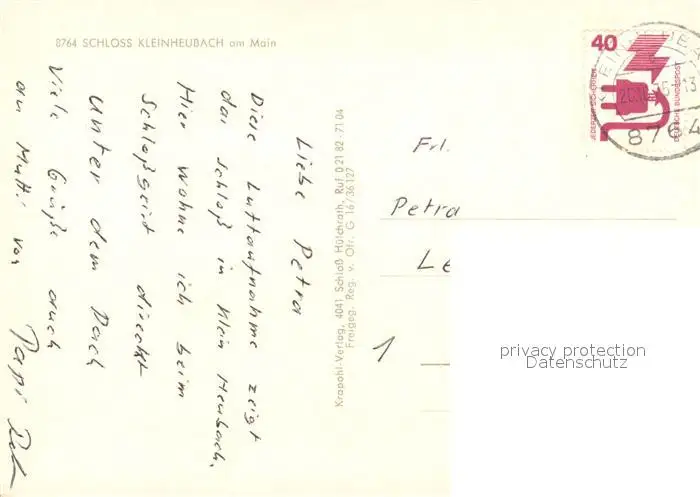 8764 SCHLOSS KLEINHEUBACH am Main
Liebe Petra
Diese Luftaufnahme zeigt
das Schloß in Klein Heubach.
Hier wohne ich beim
Schloßgeist direkt
unter dem Dach
Viele Grüße auch
an Mutti von Papi
Krapohl-Verlag, 4041 Schloß Hülchrath, Ruf 0 21 82 - 71 04
Freigeg. Reg. v. Ofr. G 16/36127
40
JEDERZEIT SICHERHEIT
DEUTSCHE BUNDESPOST
8764
Frl.
Petra
Le
1
privacy protection
Datenschutz